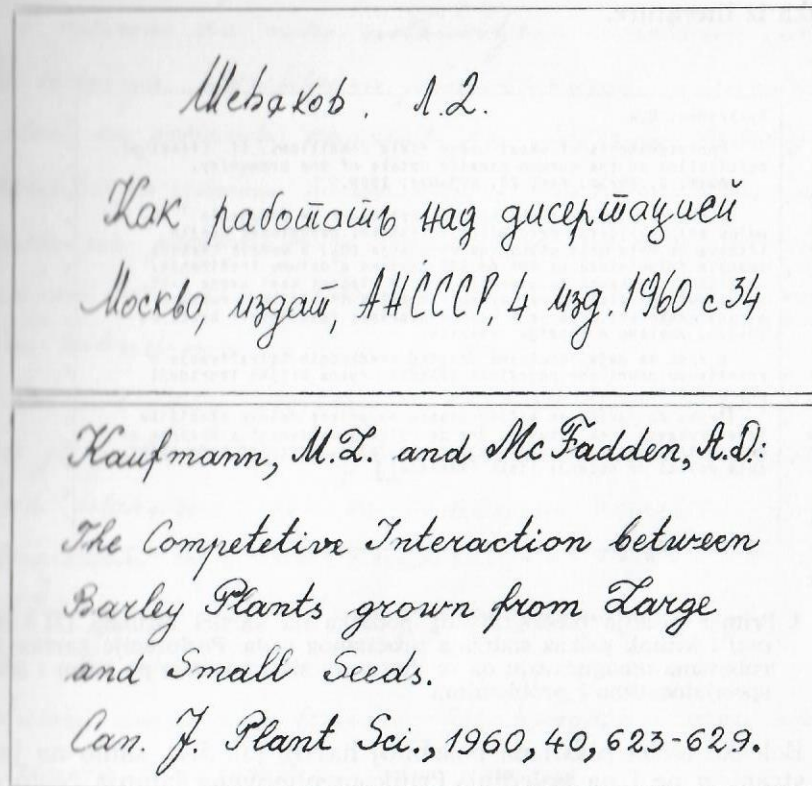 Шевяков. Л.Д.
Как работать над дисертацией
Москво, издат, АНСССР, 4 изд. 1960 с 34
Kaufmann, M.L. and McFadden, A.D.:
The Competetive Interaction between
Barley Plants grown from Large
and Small Seeds.
Can. J. Plant Sci., 1960, 40, 623-629.